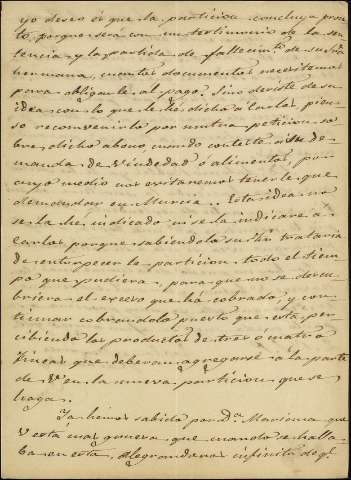 yo deseo és que la particion concluya pron-
to, porque será con un testimonio de la sen-
tencia y la partida de fallecimto. de su
hermana, cuantos documentos necesitemos
para obligarle al pago. Si no desiste de su
idea con lo que le hé dicho a Carlos, pien-
so reconvenirlo por mutua peticion so-
bre dicho abono, cuando conteste a de-
manda de viudedad o alimentos, por
cuyo medio nos evitaremos tenerle que
demandar en Murcia. Esta idea no
se la hé indicado ni se la indicaré a
Carlos porque sabiendola su trataria
de entorpecer la particion todo el tiem-
po que pudiera, para que no se descu-
briera el exceso que há cobrado, y con-
tinuar cobrandolo puesto que está per-
cibiendo los productos de tres ó cuatro
fincas que deberan agregarse á la parte
de V. en la nueva particion que se
haga.
Ya hémos sabido por Da. Mariana que
V está mas gruesa que cuando se halla-
ba en esta, alegrandonos infinito de qe.